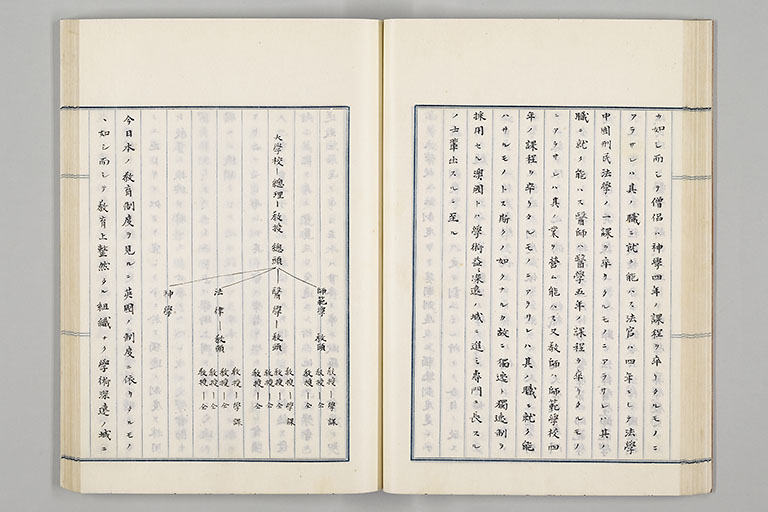 カ如シ而シテ僧侶ハ神學四年ノ課程ヲ卒リタルモノニ
アラサレハ其ノ職ニ就ク能ハス法官ハ四年ニシテ法學
中國刑民法學ノ一課ヲ卒リタルモノニアラサレハ其ノ
職ニ就ク能ハス醫師ハ醫學五年ノ課程ヲ卒リタルモノ
ニアラサレハ其ノ業ヲ營ム能ハス又敎師ハ師範學校四
年ノ課程ヲ卒リタルモノニアラサレハ其ノ職ニ就ク能
ハサルモノトス斯クノ如クナルカ故ニ獨逸ト獨逸制ヲ
採用セル澳國トハ學術益〻深遠ノ域ニ進ミ專門ニ長スル
ノ士輩出スルニ至ル
大學校ー總理ー敎授總頭
師範學ー敎頭
敎授ー學課
敎授ー仝
敎授ー仝
醫學ー敎頭
敎授ー學課
敎授ー仝
敎授ー仝
法律ー敎頭
敎授ー學課
敎授ー仝
敎授ー仝
神學
今日本ノ敎育制度ヲ見ルニ英國ノ制度ニ依リタルモノ
ヽ如シ而シテ敎育上整然タル組織ナク學術深遠ノ域ニ